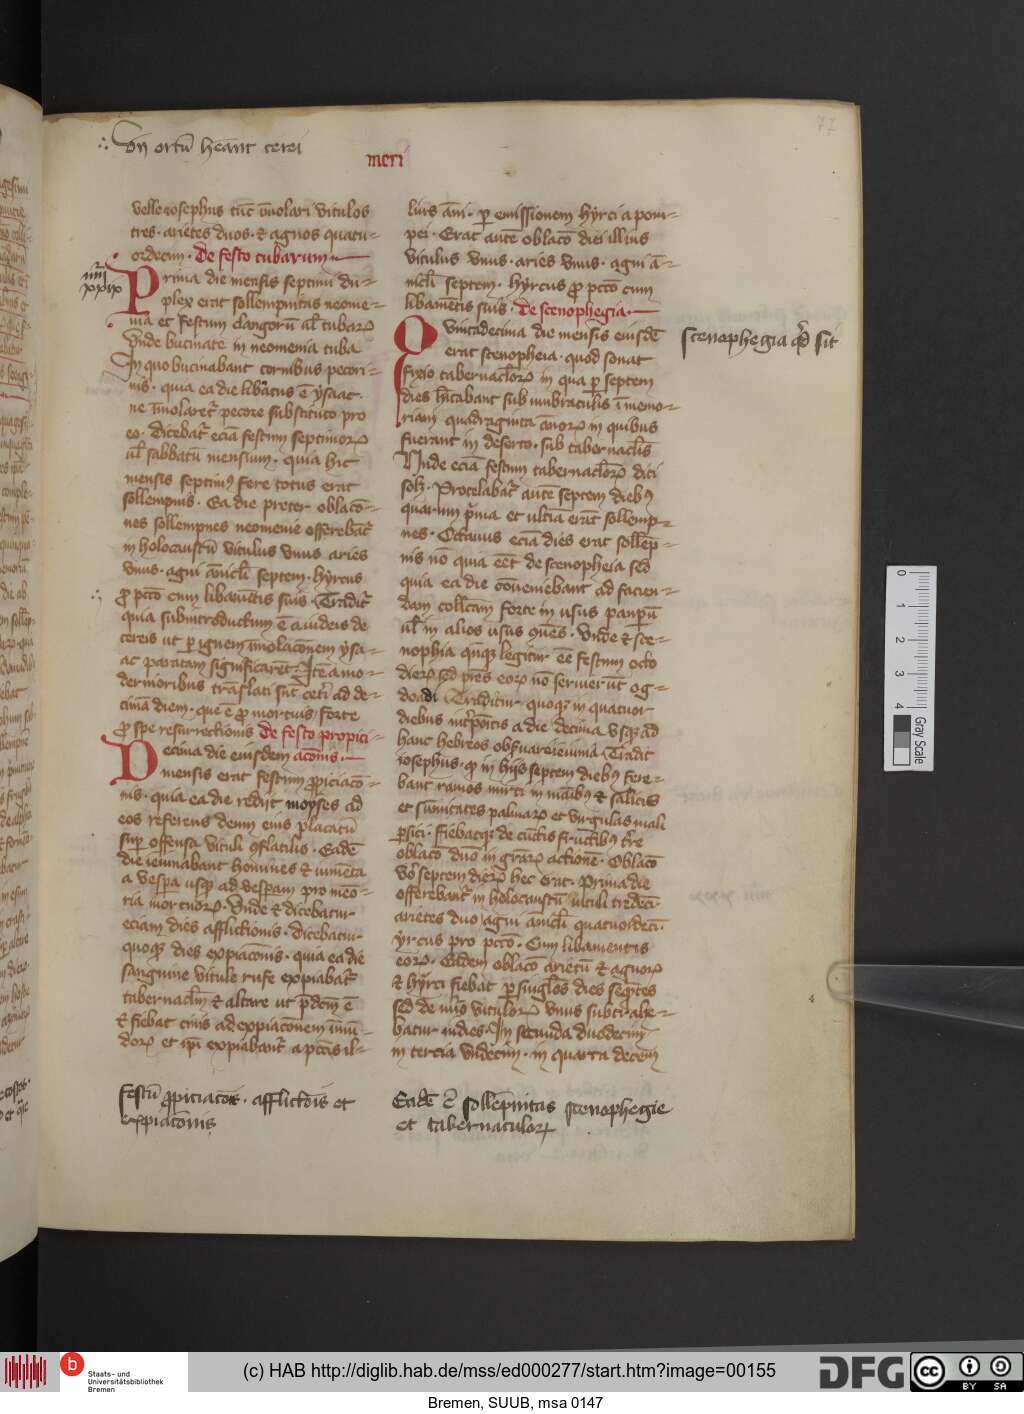 77
Un ortū heānt cerei
meri
velle iosephus tūc īmolari vitulos
tres · arietes duos · et agnos quatu=
ordecim · De festo tubarum
iiii
xxix
Prima die mensis septimi du=
plex erat sollempnitas neome=
nia et festum clangorū ul' tubarꝝ
Unde bucinate in neomenia tuba
In quo bucinabant cornibus pecori=
nis · quia ea die libatus ē ysaac
ne īmolaretᷣ pecore substituto pro
eo · dicebatᷣ eciā festum septimorꝝ
ul' sabbatū mensium · quia hic
mensis septimꝰ fere totus erat
sollempnis · Ea die preter oblacō=
nes sollempnes neomenie offerebātᷣ
in holocaustū vitulus vnus aries
vnus · agni āniculi septem · hyrcus
ꝓ pctō cum libamētis suis · Traditᷣ
quia subintroductum ē a iudeis de
cereis ut ꝑ ignem īmolacōnem ysa=
ac paratam significaret · Itē a mo=
dernioribus trāslati sūt cerei ad de=
cimā diem · que ē ꝓ mortuis forte
ꝓ spe resurrectionis De festo propici=
Decima die eiusdem acōnis ·
mensis erat festum ꝓpiciacō=
nis · quia ea die redijt moyses ad
eos referens deum eius placatū
suꝑ offensa vituli ꝯflatilis · Eadē
die ieiunabant homines et iumēta
a vespa usqꝫ ad vespam pro meō=
ria mortuorꝝ · Unde et dicebatur
eciam dies afflictionis · dicebatur
quoqꝫ dies expiacōnis · quia ea die
sanguine vitule rufe expiabatᷣ
tabernaclm̄ et altare ut p̄dcm̄ ē
et fiebat cinis ad expiacōnem īmū=
dorꝝ et ip̄i expiabantᷣ a pctīs il=
festū ꝓpiciacōis · afflictōis et
expiacōnis
lius āni · ꝑ emissionem hyrci apom=
pei · Erat autē oblacō diei illius
vitulus vnus · aries vnus · agni ā=
niculi septem · hyrcus ꝓ pctō cum
libamētis suis · De scenophegia ·
Quintadecima die mensis eiusdē
erat scenopheia · quod sonat
fixio tabernaclorꝝ in qua ꝑ septem
dies hītabant sub umbraculis ī memo=
riam quadraginta ānorꝝ in quibus
fuerant in deserto · sub tabernaclīs
Unde eciā festum tabernaclorꝝ dici
solꝫ · Protelabatᷣ autē septem diebꝰ
quarum p̄ma et ultīa erāt sollemp=
nes · Octauus eciā dies erat sollēp=
nis nō quia eēt de scenopheia sed
quia ea die cōueniebant ad facien=
dam collctam forte in usus paupū
ul' in alios usus ꝯmunes · Unde et sce=
nophia quqꝫ legitur eē festum octo
dierꝝ sed p̄res eorꝝ nō seruierūt og=
doadi Traditur quoqꝫ in quatuor
diebus int̄positis a die decima usqꝫ ad
hanc hebreos obseruare ieiunia Tradit
iosephus · ꝙ in hijs septem diebꝰ fere=
bant ramos mirti in manibꝰ et salicis
et sūmitates palmarꝝ et virgulas mali
ꝑsici · fiebatqꝫ de cūctis fructibꝰ tr̄e
oblacō deo in grārꝝ actione · Oblacō
vō septem dierꝝ hec erat · Prima die
offerebantᷣ in holocaustū uituli tredeci
arietes duo agni āniculi quatuordeci
yrcus pro pctō · Cum libamentis
eorꝝ · Eadem oblacō arietū et agnorꝝ
et hyrci fiebat ꝑ singlos dies septēs
sed de nūo vitulorꝝ vnus subtrahe=
batur indies In secunda duodecim
in tercia vndeciī · in quarta decem
Eadē ē sollēpnitas scenophegie
et tabernaculorꝝ
scenophegia qd sit
4
0
1
2
3
4
Gray Scale
b
Staats- und
Universitätsbibliothek
Bremen
(c) HAB http://diglib.hab.de/mss/ed000277/start.htm?image=00155
DFG
cc
BY SA
Bremen, SUUB, msa 0147